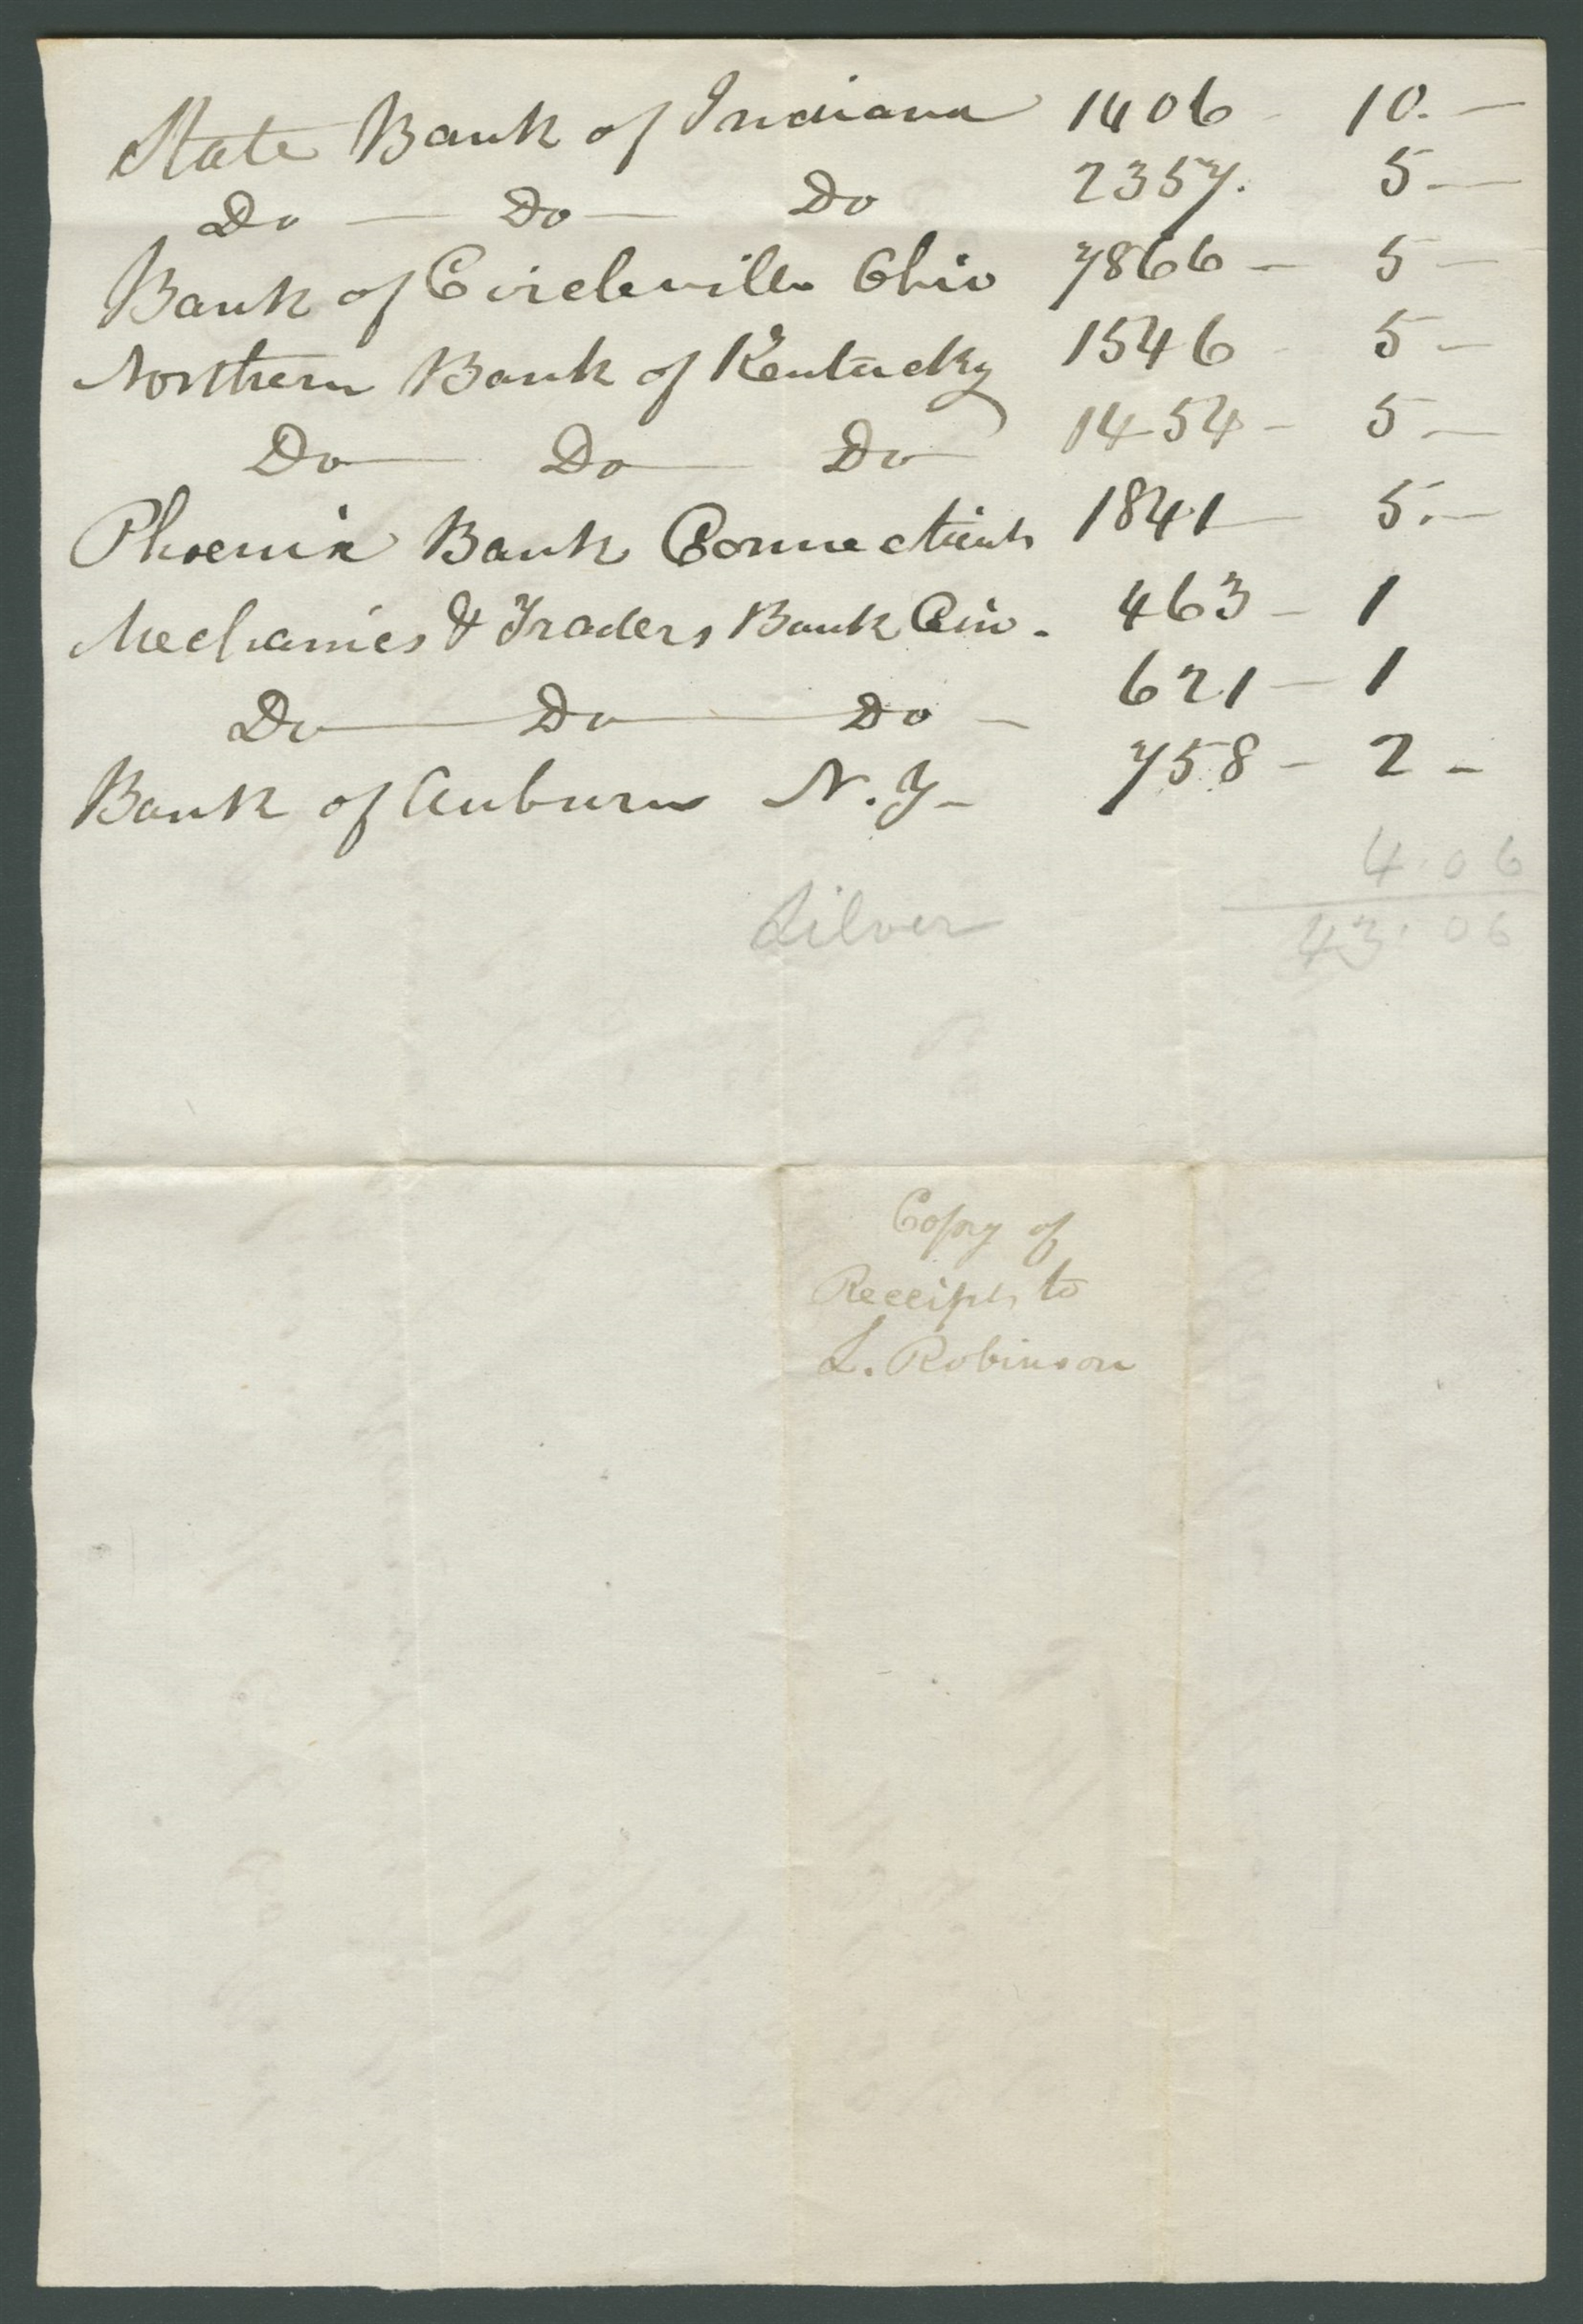 State Bank of Indiana 1406 - 10. —
Do — Do — Do 2357. 5 —
Bank of Circleville Ohio 7866 — 5 —
Northern Bank of Kentucky 1546 - 5 —
Do — Do — Do — 1454 - 5 —
Phoenix Bank Connecticut 1841 — 5. —
Mechanics & Traders Bank Cin. 463 — 1
Do — Do — Do — 621 — 1
Bank of Auburn N. Y — 758 — 2 —
4.06
Silver 43.06
Copy of
Receipts to
L. Robinson